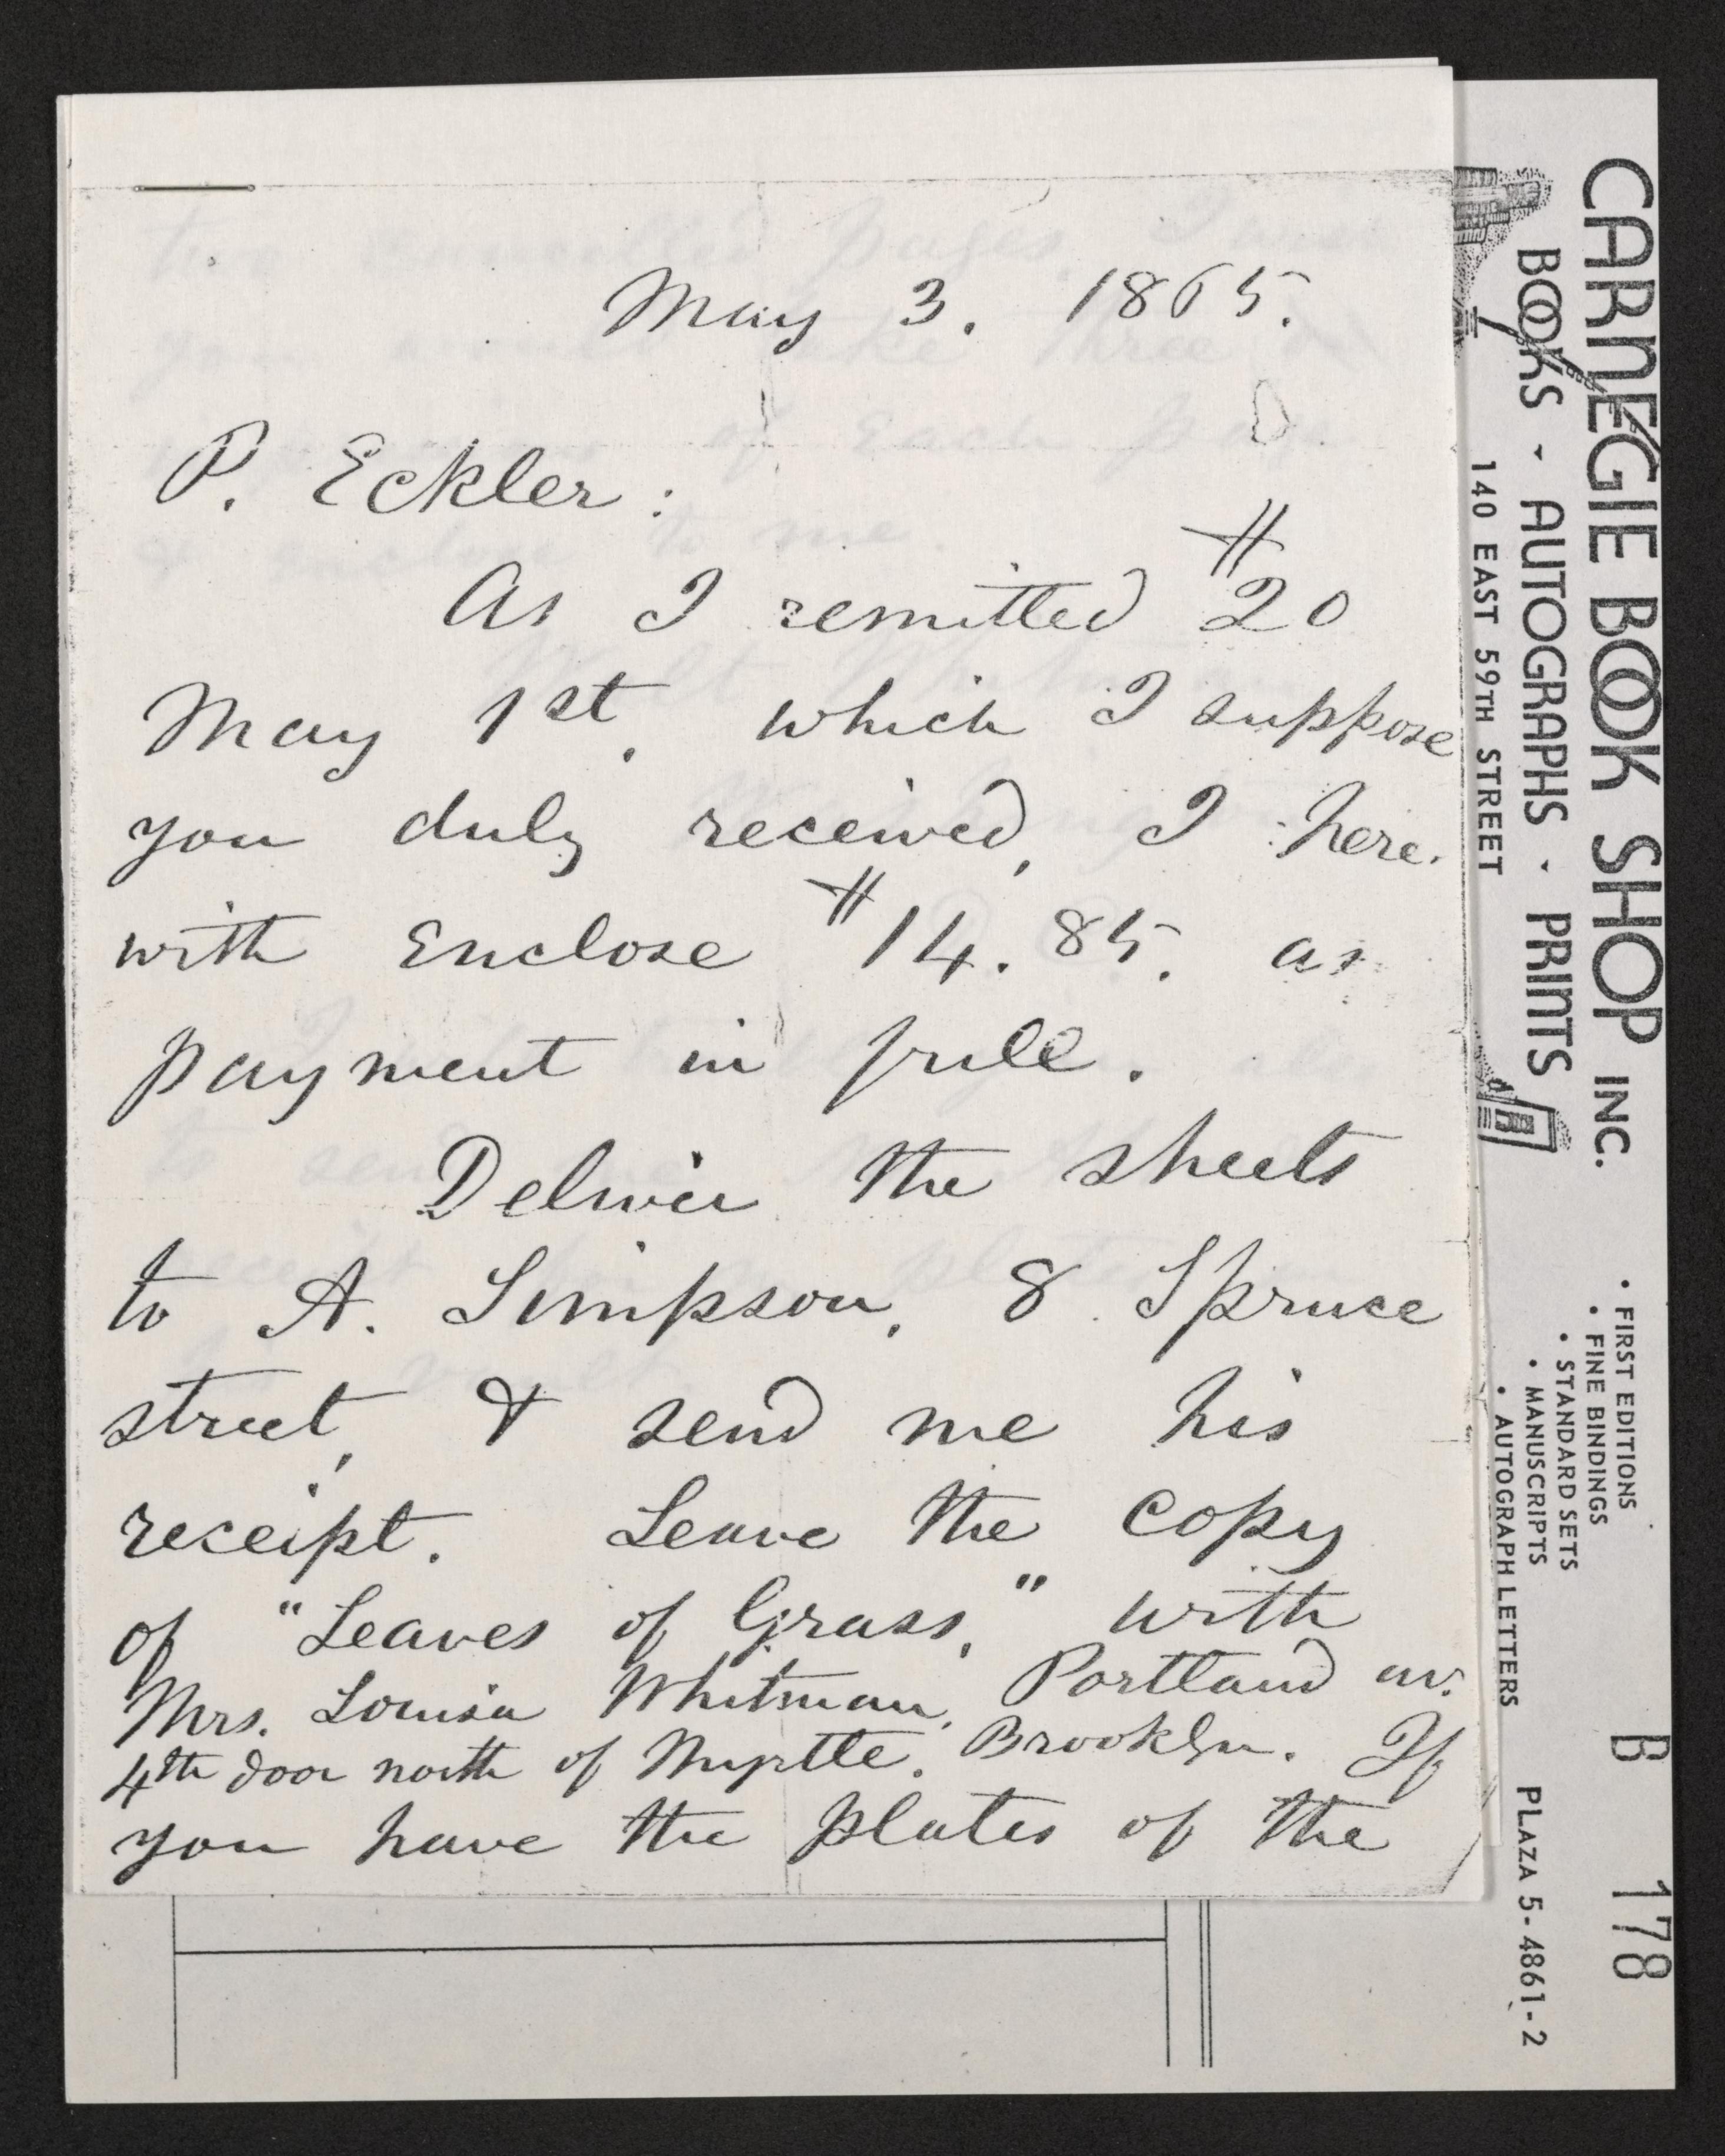 May 3. 1865.
P. Eckler:
As I remitted $20
May 1st, which I suppose
you duly received, I here-
with enclose $14.85. as
payment in full.
Deliver the sheets
to A. Simpson, 8 Spruce
street, & send me his
receipt. Leave the copy
of "Leaves of Grass," with
Mrs. Louisa Whitman, Portland av.
4th door north of Myrtle. Brooklyn. If
you have the plates of the
CARNEGIE BOOK SHOP INC.
BOOKS - AUTOGRAPHS - PRINTS
140 EAST 59TH STREET
• FIRST EDITIONS
• FINE BINDINGS
• STANDARD SETS
• MANUSCRIPTS
• AUTOGRAPH LETTERS
PLAZA 5-4861-2
B 178